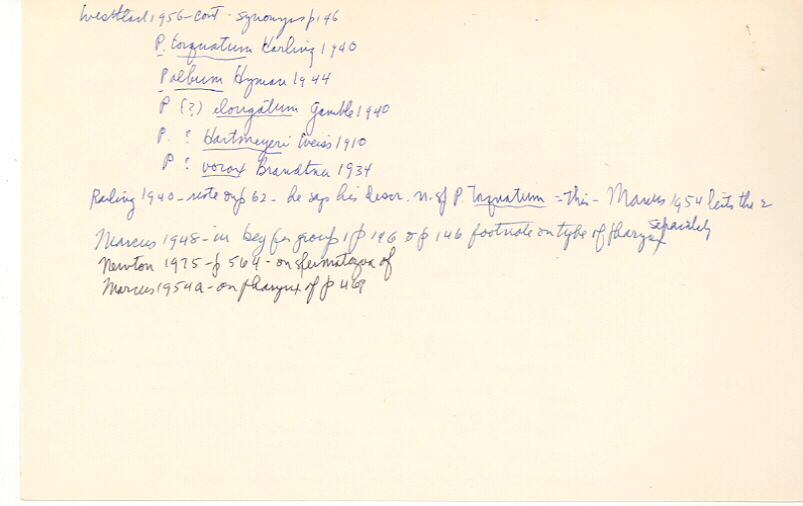 Westblad 1956 - cont. synonyms p 146
P. torquatum Karling 1940
P album Hyman 1944
P (?) elongatum Gamble 1940
P. ? Hartmeyeri Weiss 1910
P ? vorax Brandtner 1934
Karling 1940 - note on p 62 - he says his descr. n. of P. Torquatum = this - Marcus 1954 lists the 2 separately
Marcus 1948 - in key for group 1 p 196 & p 146 footnote on type of pharynx
Newton 1975 - p 564 - on spermatozoa of
Marcus 1954a - on pharynx of p 469